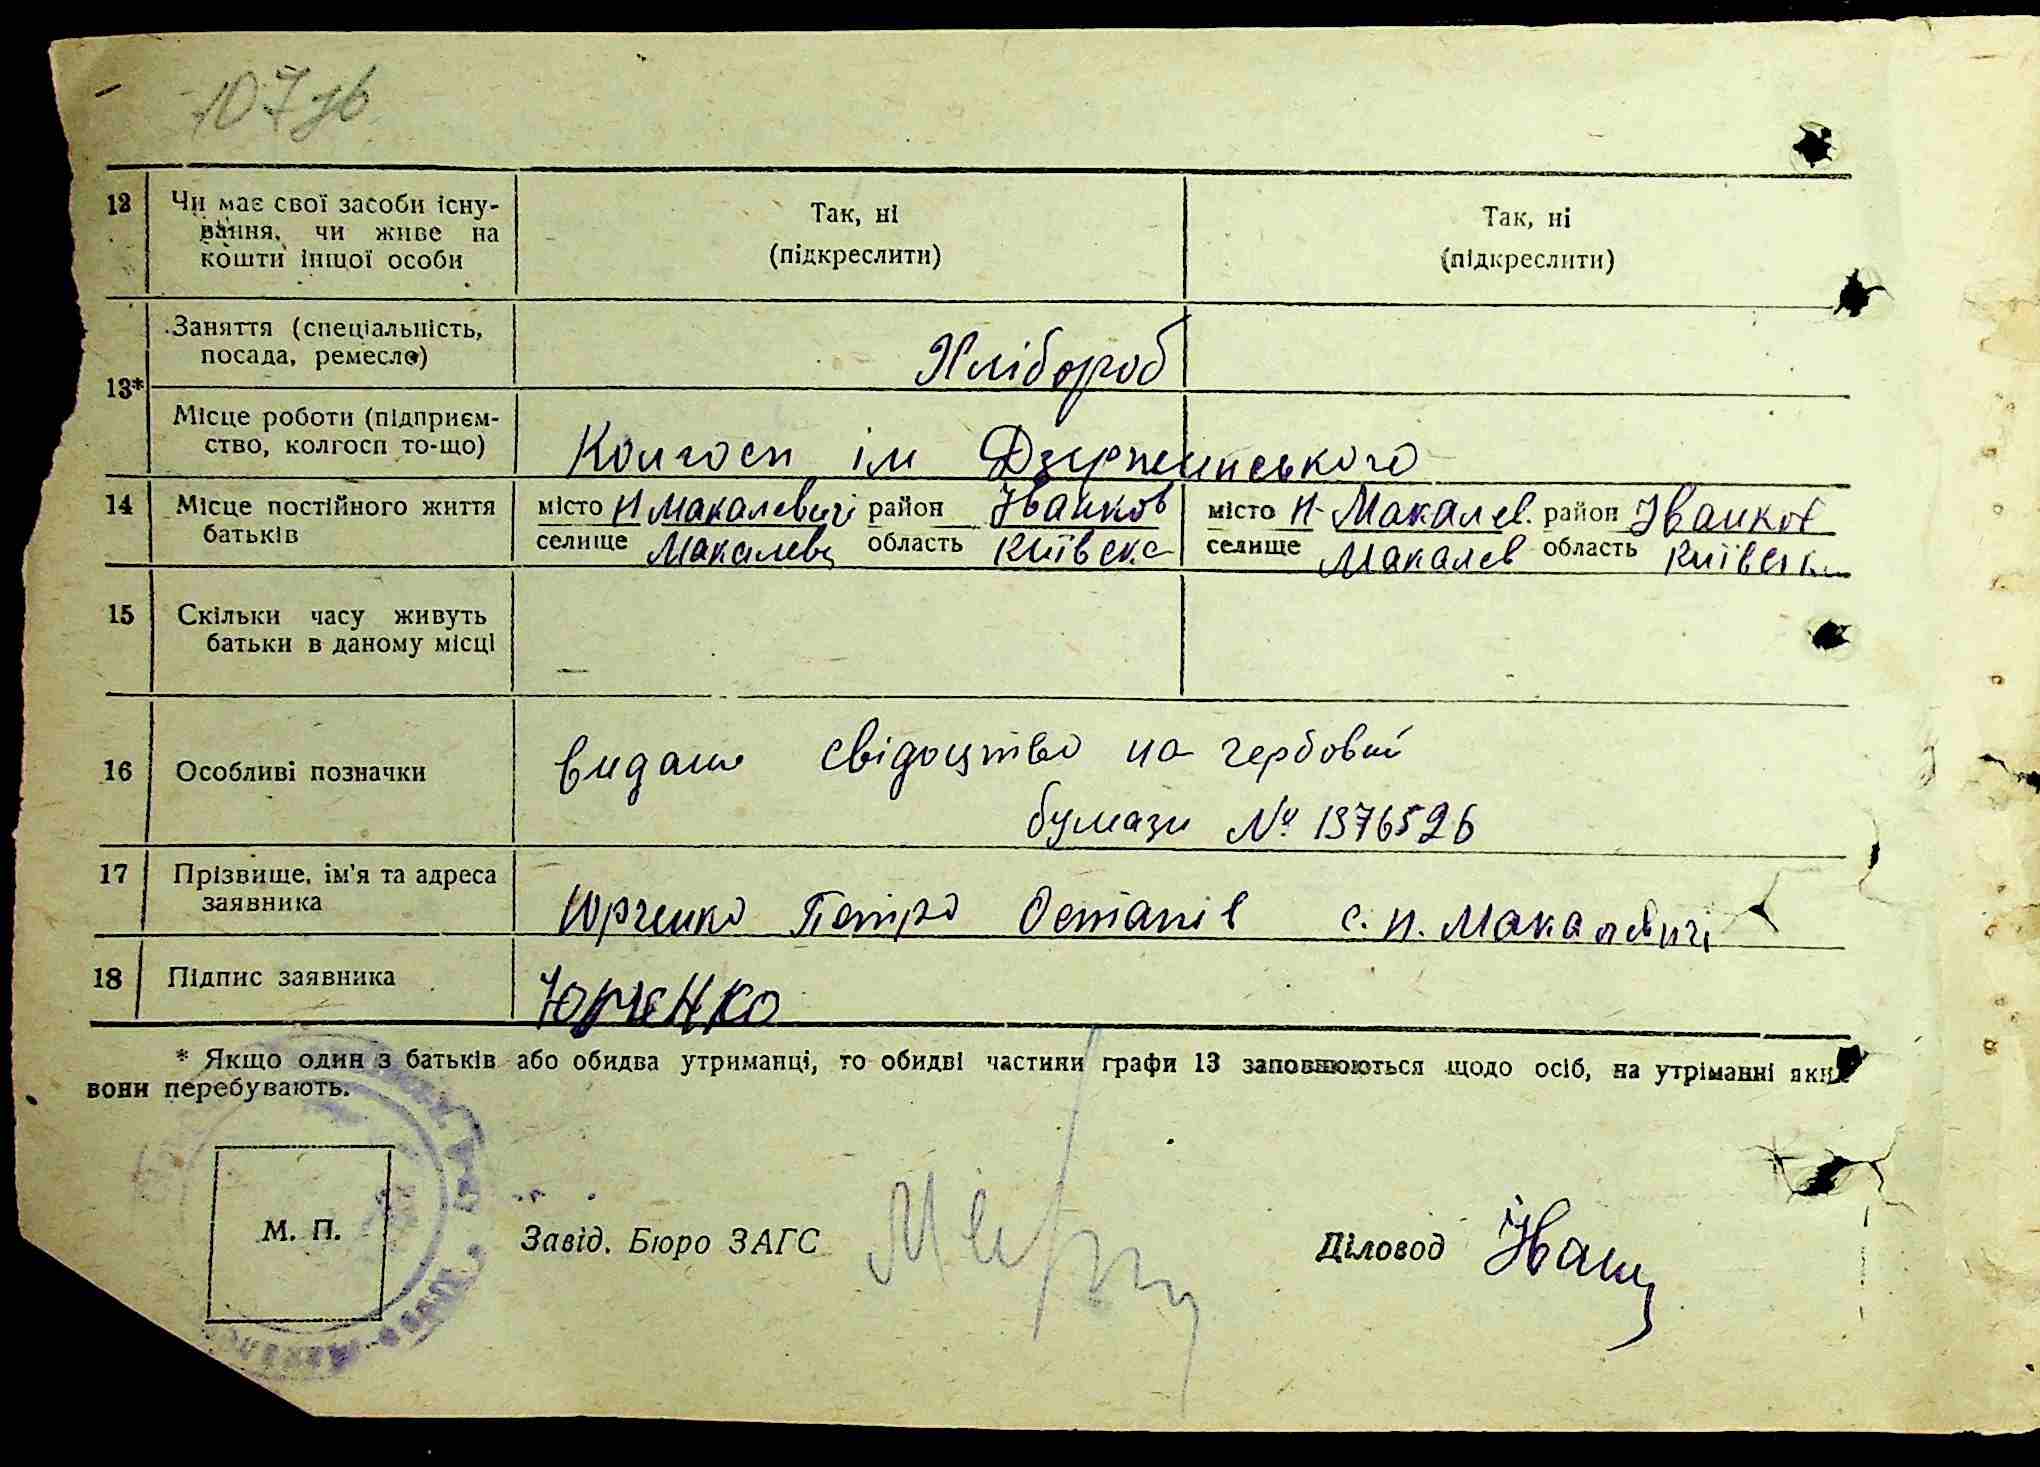 107 зв
12 Чи має свої засоби існу-
вання, чи живе на
кошти іншої особи
Так, ні
(підкреслити)
Так, ні
(підкреслити)
13* Заняття (спеціальність,
посада, ремесло)
Хлібороб
Місце роботи (підприєм-
ство, колгосп то-що)
Колгосп ім Дзержинського
14 Місце постійного життя
батьків
місто Н Макалевичі район Іванков
селище Макалеви область Київська
місто Н-Макалев. район Іванков
селище Макалев область Київськ
15 Скільки часу живуть
батьки в даному місці
—
16 Особливі позначки
видано свідоцтво на гербовий
бумази № 1376526
17 Прізвище, ім'я та адреса
заявника
Юрченко Петро Остапів с. Н. Макалевичі
18 Підпис заявника
Юрченко
* Якщо один з батьків або обидва утриманці, то обидві частини графи 13 заповнюються щодо осіб, на утріманні яких
вони перебувають.
М. П.
Завід. Бюро ЗАГС
Діловод